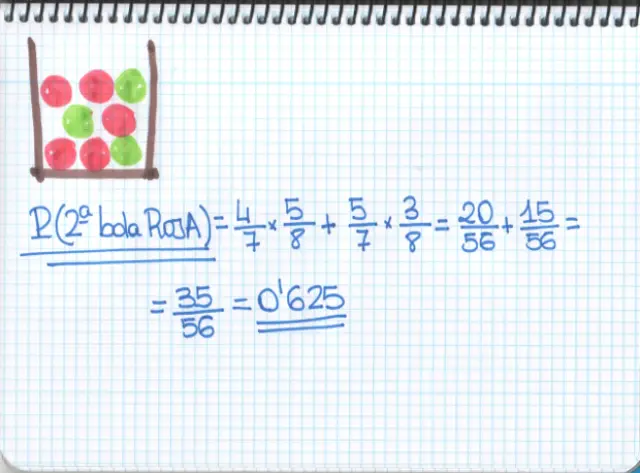 P(2ª bola RoJA) = 4/7 × 5/8 + 5/7 × 3/8 = 20/56 + 15/56 =
= 35/56 = 0'625